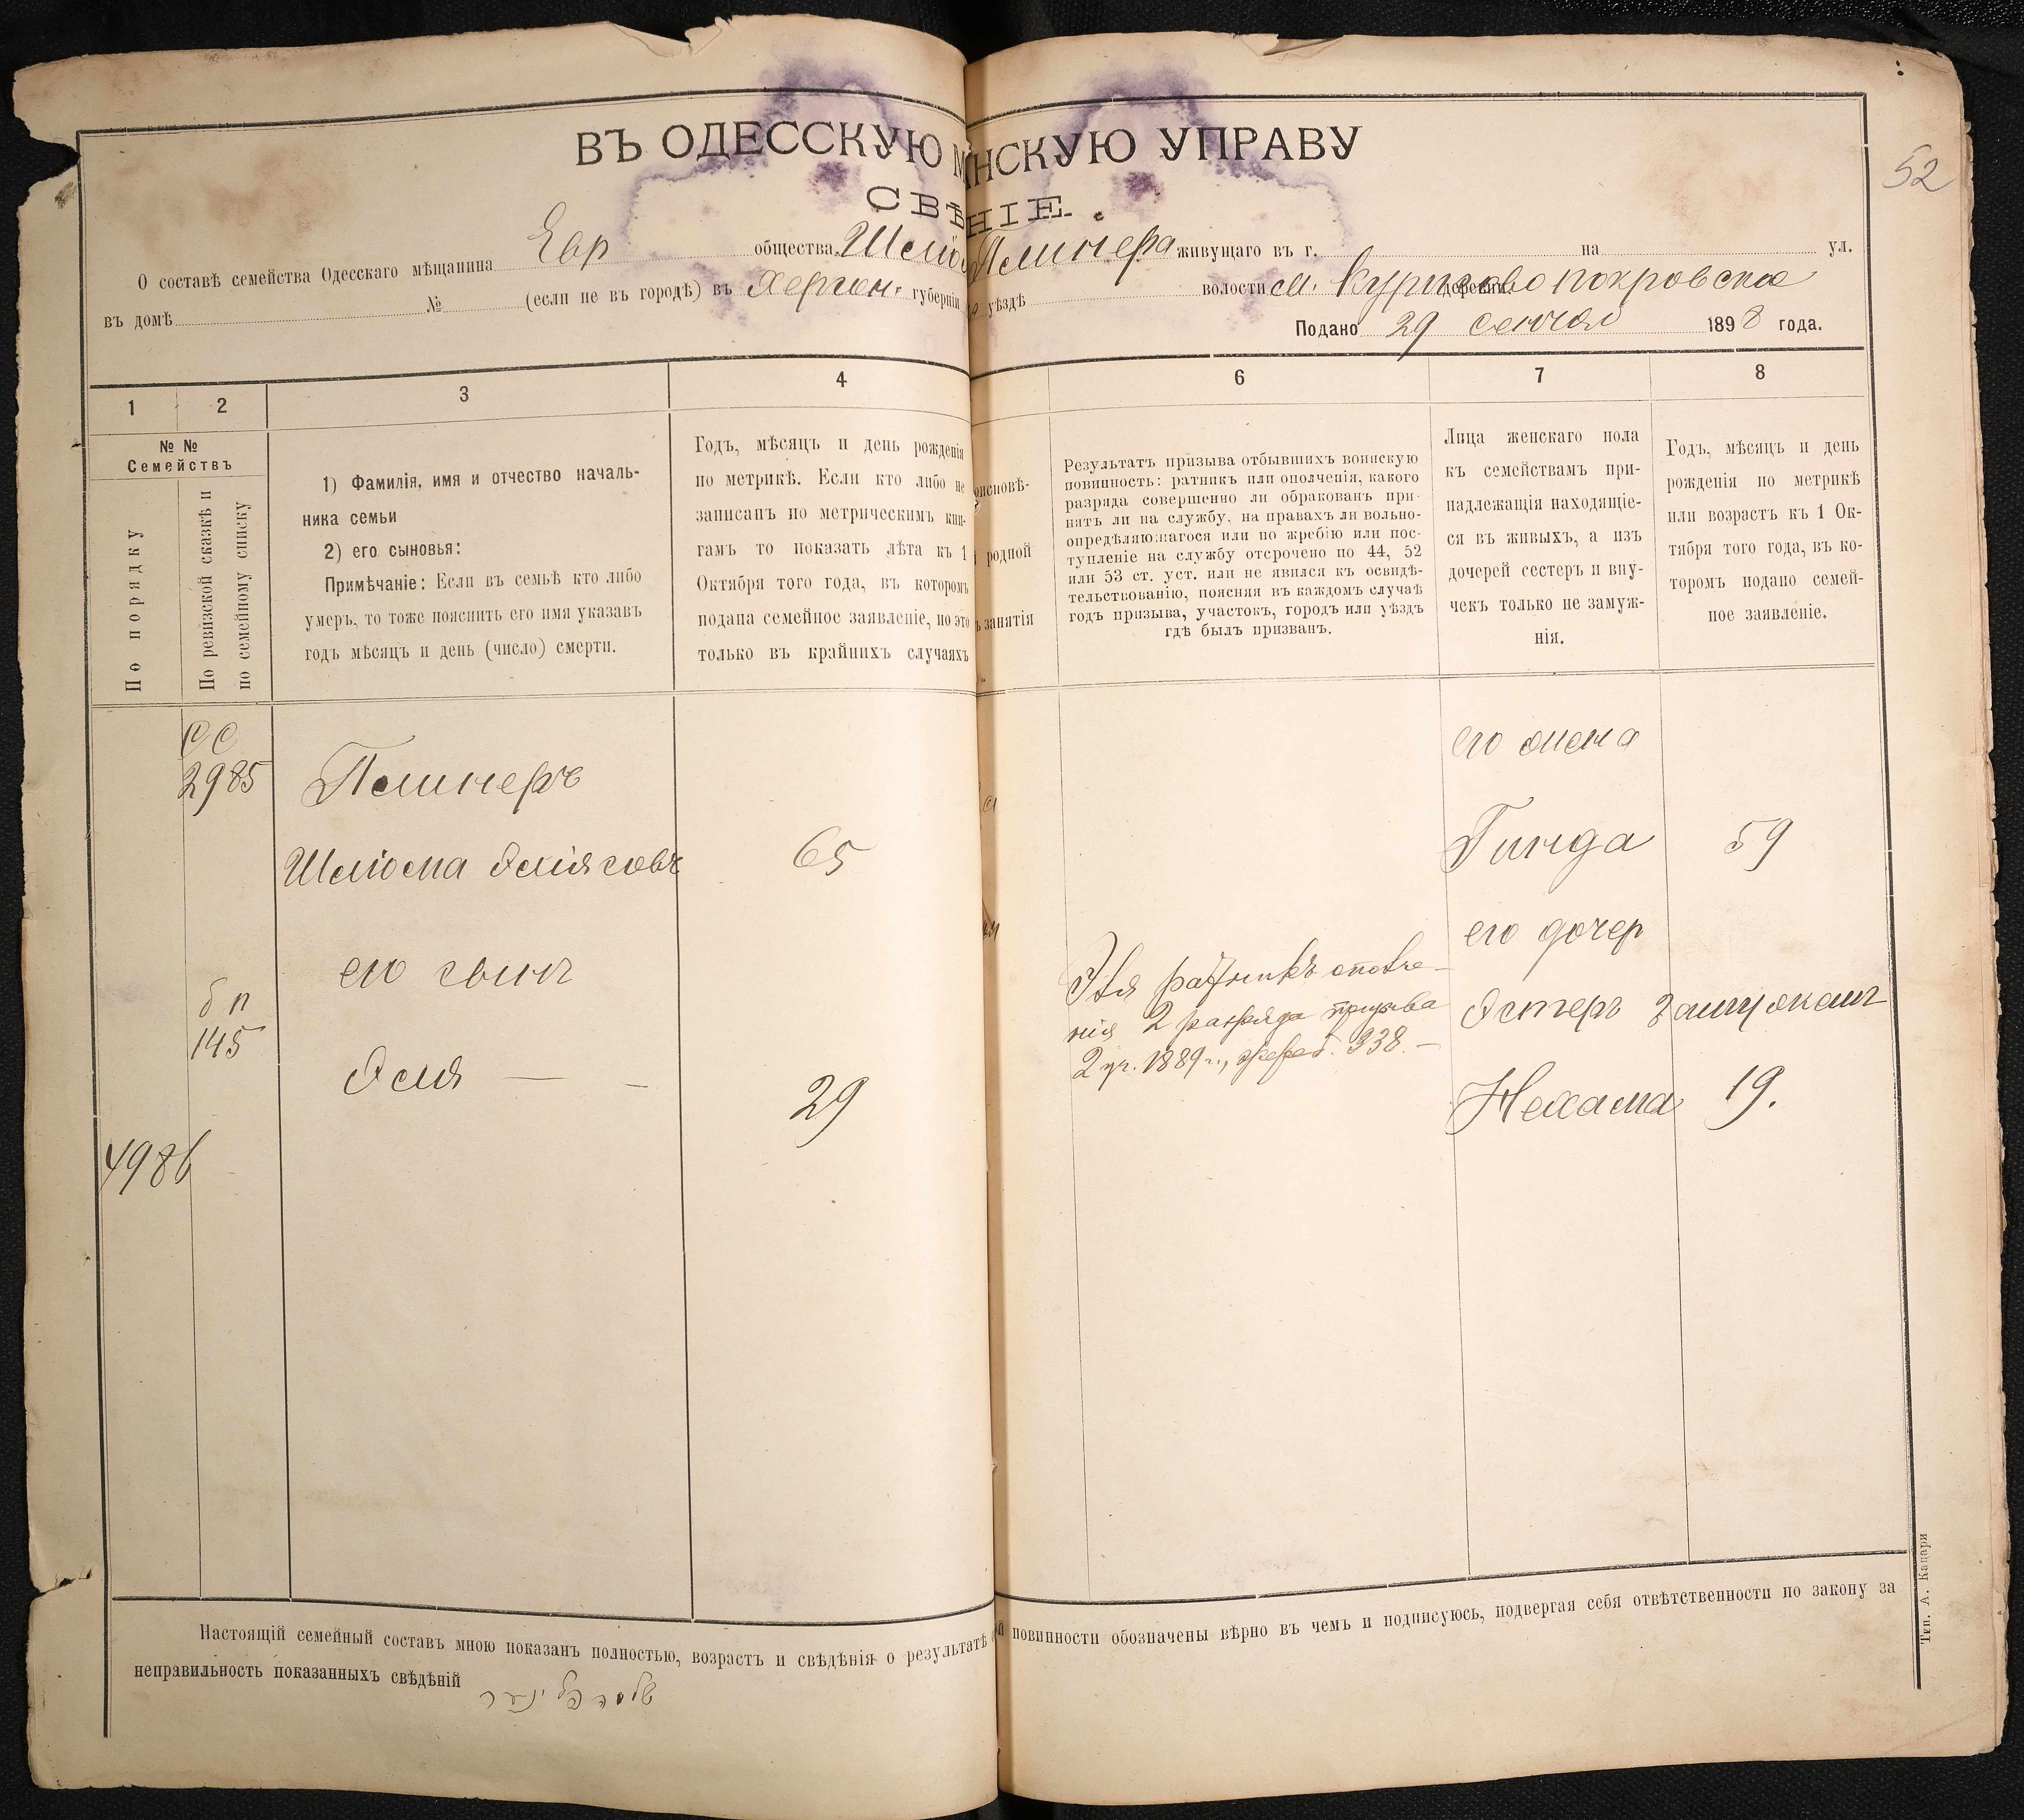 52
ВЪ ОДЕССКУЮ М НСКУЮ УПРАВУ
СВѢ НІЕ.
О составѣ семейства Одесскаго мѣщанина Евр общества Шлё Плинера живущаго въ г. на ул.
въ домѣ № (если не въ городѣ) въ Херсон. губерніи уѣздѣ волости м. Курисово покровска деревни
Подано 29 1898 года.
1 2 3 4 6 7 8
№ №
Семействъ
По порядку
По ревизской сказкѣ и
по семейному списку
1) Фамилія, имя и отчество началь-
ника семьи
2) его сыновья:
Примѣчаніе: Если въ семьѣ кто либо
умеръ, то тоже пояснить его имя указавъ
годъ мѣсяцъ и день (число) смерти.
Годъ, мѣсяцъ и день рожденія
по метрикѣ. Если кто либо не
записанъ по метрическимъ кни-
гамъ то показать лѣта къ 1
Октября того года, въ которомъ
подана семейное заявленіе, но это
только въ крайнихъ случаяхъ
исповѣ-
родной
занятія
Результатъ призыва отбывшихъ воинскую
повинность: ратникъ или ополченія, какого
разряда совершенно ли обракованъ при-
нятъ ли на службу, на правахъ ли вольно-
опредѣляющагося или по жребію или пос-
тупленіе на службу отсрочено по 44, 52
или 53 ст. уст. или не явился къ освидѣ-
тельствованію, поясняя въ каждомъ случаѣ
годъ призыва, участокъ, городъ или уѣздъ
гдѣ былъ призванъ.
Лица женскаго пола
къ семействамъ при-
надлежащія находящіе-
ся въ живыхъ, а изъ
дочерей сестеръ и вну-
чекъ только не замуж-
нія.
Годъ, мѣсяцъ и день
рожденія по метрикѣ
или возрастъ къ 1 Ок-
тября того года, въ ко-
торомъ подано семей-
ное заявленіе.
СС
2985
Плинеръ
его жена
Шлiома 65
Гинда 59
его сынъ
его дочер
бп
145
Эля 29
Эля ратникъ ополче-
нія 2 разряда призыва
2 уч. 1889 г., жреб. 338.
Эстеръ замужемъ
Нехама 19.
4986
Настоящій семейный составъ мною показанъ полностью, возрастъ и свѣдѣнія о результатѣ й повинности обозначены вѣрно въ чемъ и подписуюсь, подвергая себя отвѣтственности по закону за
неправильность показанныхъ свѣдѣній שלמה פלינער
Тип. А. Кацари